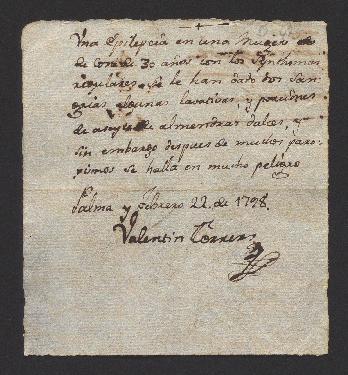 Una Epilepcia en una Muger
de cerca de 30 años con los Synthomas
regulares, se le han dado dos San-
grias, algunas lavativas, y porciones
de aseyte de almendras dulces, y
sin embargo despues de muchos paro-
xismos se halla en mucho peligro
Palma y Febrero 22. de 1798.
Valentin Terrers